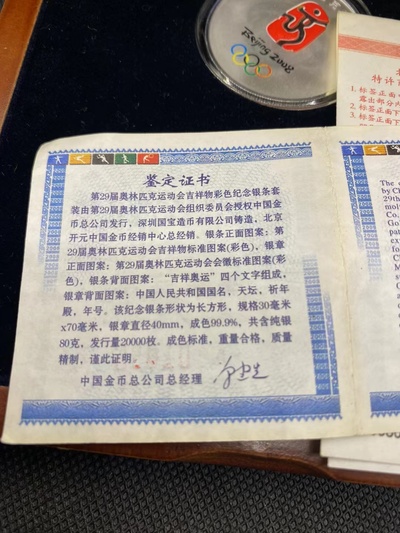 Beijing 2008
特许
1. 标签正面
露出部分
2. 标签正面下
3. 标签正面下
鉴定证书
第29届奥林匹克运动会吉祥物彩色纪念银条套
装由第29届奥林匹克运动会组织委员会授权中国金
币总公司发行，深圳国宝造币有限公司铸造，北京
开元中国金币经销中心总经销。银条正面图案：第
29届奥林匹克运动会吉祥物标准图案(彩色)，银章
正面图案：第29届奥林匹克运动会会徽标准图案(彩
色)，银条背面图案：“吉祥奥运”四个文字组成，
银章背面图案：中国人民共和国国名，天坛，祈年
殿，年号。该纪念银条形状为长方形，规格30毫米
x70毫米，银章直径40mm，成色99.9%，共含纯银
80克，发行量20000枚。成色标准，重量合格，质量
精制，谨此证明。
中国金币总公司总经理
The
by Ch
29th
Co.,